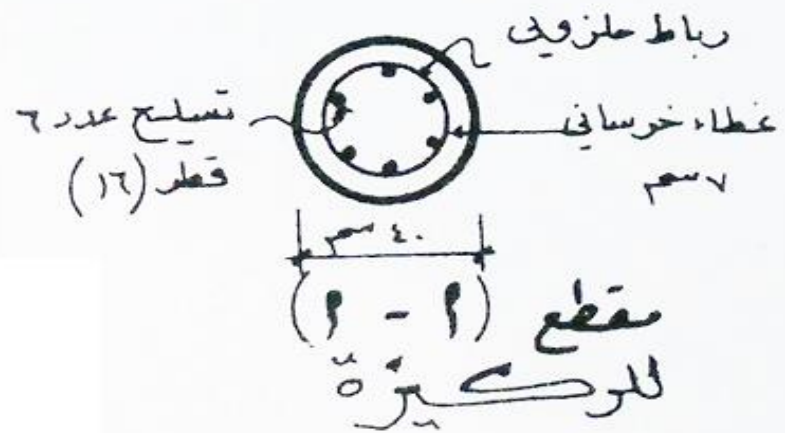 رباط حلزوني
تسليح عدد ٦
قطر (١٦)
غطاء خرساني
٧ سم
٤٠ سم
مقطع (٢ - ٢)
للركيزة